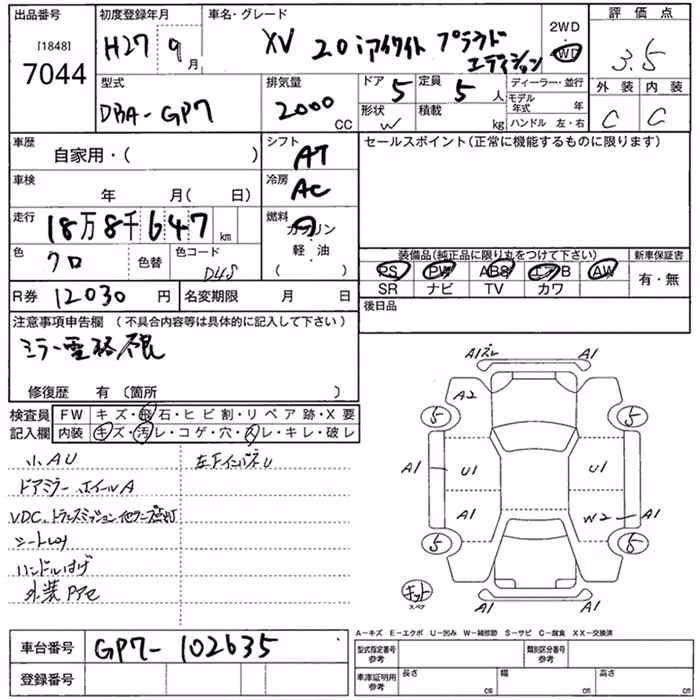 出品番号 初度登録年月 車名・グレード 2WD 評価点
[1848] H27 9月 XV 2.0i アイサイト プラウド エディション 4WD 3.5
7044
型式 排気量 ドア 定員 ディーラー・並行 外装 内装
DBA-GP7 2000 CC 5 5人 モデル年式 年 C C
形状 W 積載 kg ハンドル 左・右
車歴 シフト セールスポイント(正常に機能するものに限ります)
自家用・( ) AT
車検 冷房
年 月(日) AC
走行 燃料
18万8千647km ガソリン
軽・油
( )
色 色替 色コード 装備品(純正品に限り丸をつけて下さい) 新車保証書
クロ D4S PS PW ABS エアB AW 有・無
SR ナビ TV カワ
R券 12030円 名変期限 月 日 後日品
注意事項申告欄 (不具合内容等は具体的に記入して下さい)
修復歴 有 〔箇所 〕
検査員 FW キズ・飛石・ヒビ割・リペア跡・X要
記入欄 内装 キズ・汚レ・コゲ・穴・スレ・キレ・破レ
小AU 左FインパネU
ドアミラー ホイールA
VDC、トランスミッション他ランプ点灯
シートしわ
ハンドルはげ
外装
A1ズレ A1
A2
5 5
A1 U1 U1 A1
W2 A1
5 5
キット
スペア A1 A1
車台番号 GP7-102635
登録番号
A−キズ E−エクボ U−凹み W−補修跡 S−サビ C−腐食 XX−交換済
型式指定番号 参考 類別区分番号 参考
車庫証明用 参考 長さ cm 幅 cm 高さ cm